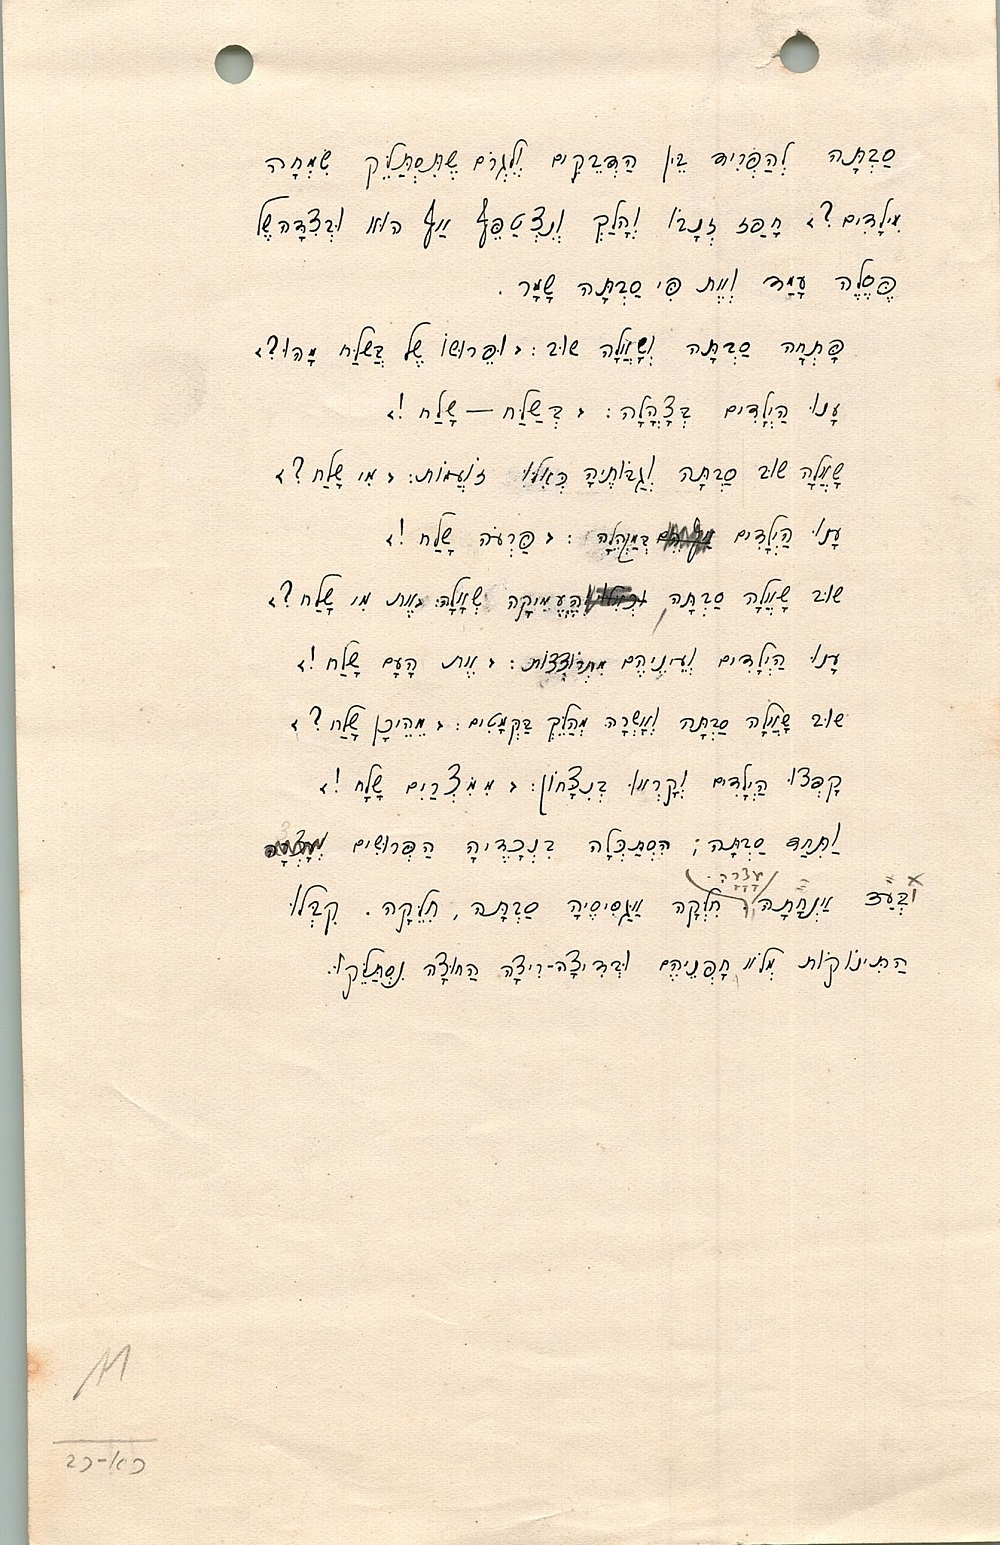 סַבְתָּה לְהַפְרִיד בֵּין הַדְּבֵקִים וְלִגְרֹם שֶׁתִּסְתַּלֵּק שִׂמְחָה
מִילָדִים?" חָפַז זְנָבוֹ וְהָלַךְ וְנִצְטַפֵּף אַף הוּא וּבְצִדָּהּ שֶׁל
עָמַד וְאֶת פִּי סַבְתָּה שָׁמָר.
פָּתְחָה סַבְתָּה וְשָׁאֲלָה שׁוּב: "וּפֵרוּשׁוֹ שֶׁל בְּשַׁלַּח מָהוּ?"
עָנוּ הַיְלָדִים בְּצָהֳלָה: "בְּשַׁלַּח — שָׁלַח!"
שָׁאֲלָה שׁוּב סַבְתָּה וְגַבּוֹתֶיהָ כְּאִלּוּ זוֹעֲמוֹת: "מִי שָׁלַח?"
עָנוּ הַיְלָדִים בְּמַקְהֵלָה: "פַּרְעֹה שָׁלַח!"
שׁוּב שָׁאֲלָה סַבְתָּה הֶעֱמִיקָה שְׁאֵלָה: "אֶת מִי שָׁלַח?"
עָנוּ הַיְלָדִים וְעֵינֵיהֶם מִתְרוֹצְצוֹת: "אֶת הָעָם שָׁלַח!"
שׁוּב שָׁאֲלָה סַבְתָּה וְאָשְׁרָהּ מְהַלֵּךְ בַּקְּמָטִים: "מֵהֵיכָן שָׁלַח?"
קָפְצוּ הַיְלָדִים וְקָרְאוּ בְּנִצָּחוֹן: "מִמִּצְרַיִם שָׁלַח!"
וַתִּחַד סַבְתָּה; הִסְתַּכְּלָה בִּנְכָדֶיהָ הַפְּרוּשִׂים
וּבְעַד אַנְחָתָהּ עֲצָרָהּ. חִלְּקָה אַגָּסֶיהָ סַבְתָּה, חִלֵּקָה. קִבְּלוּ
הַתִּינוֹקוֹת מְלֹא חָפְנֵיהֶם וּבְדִיצָה-רִיצָה הַחוּצָה נִסְתַּלֵּקוּ.
כא-כב